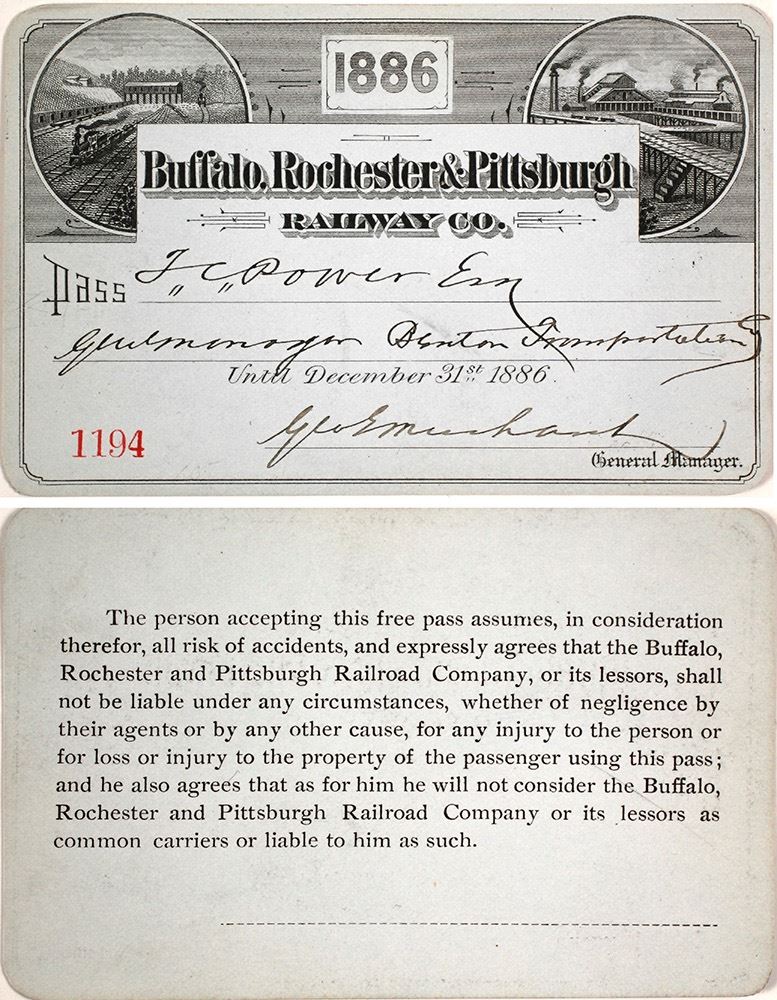 1886
Buffalo, Rochester & Pittsburgh
RAILWAY CO.
Pass T,, C,, Power Esq
Genl manager Benton Transportation Co
Until December 31st 1886.
1194
Geo E Merchant
General Manager.
The person accepting this free pass assumes, in consideration
therefor, all risk of accidents, and expressly agrees that the Buffalo,
Rochester and Pittsburgh Railroad Company, or its lessors, shall
not be liable under any circumstances, whether of negligence by
their agents or by any other cause, for any injury to the person or
for loss or injury to the property of the passenger using this pass;
and he also agrees that as for him he will not consider the Buffalo,
Rochester and Pittsburgh Railroad Company or its lessors as
common carriers or liable to him as such.